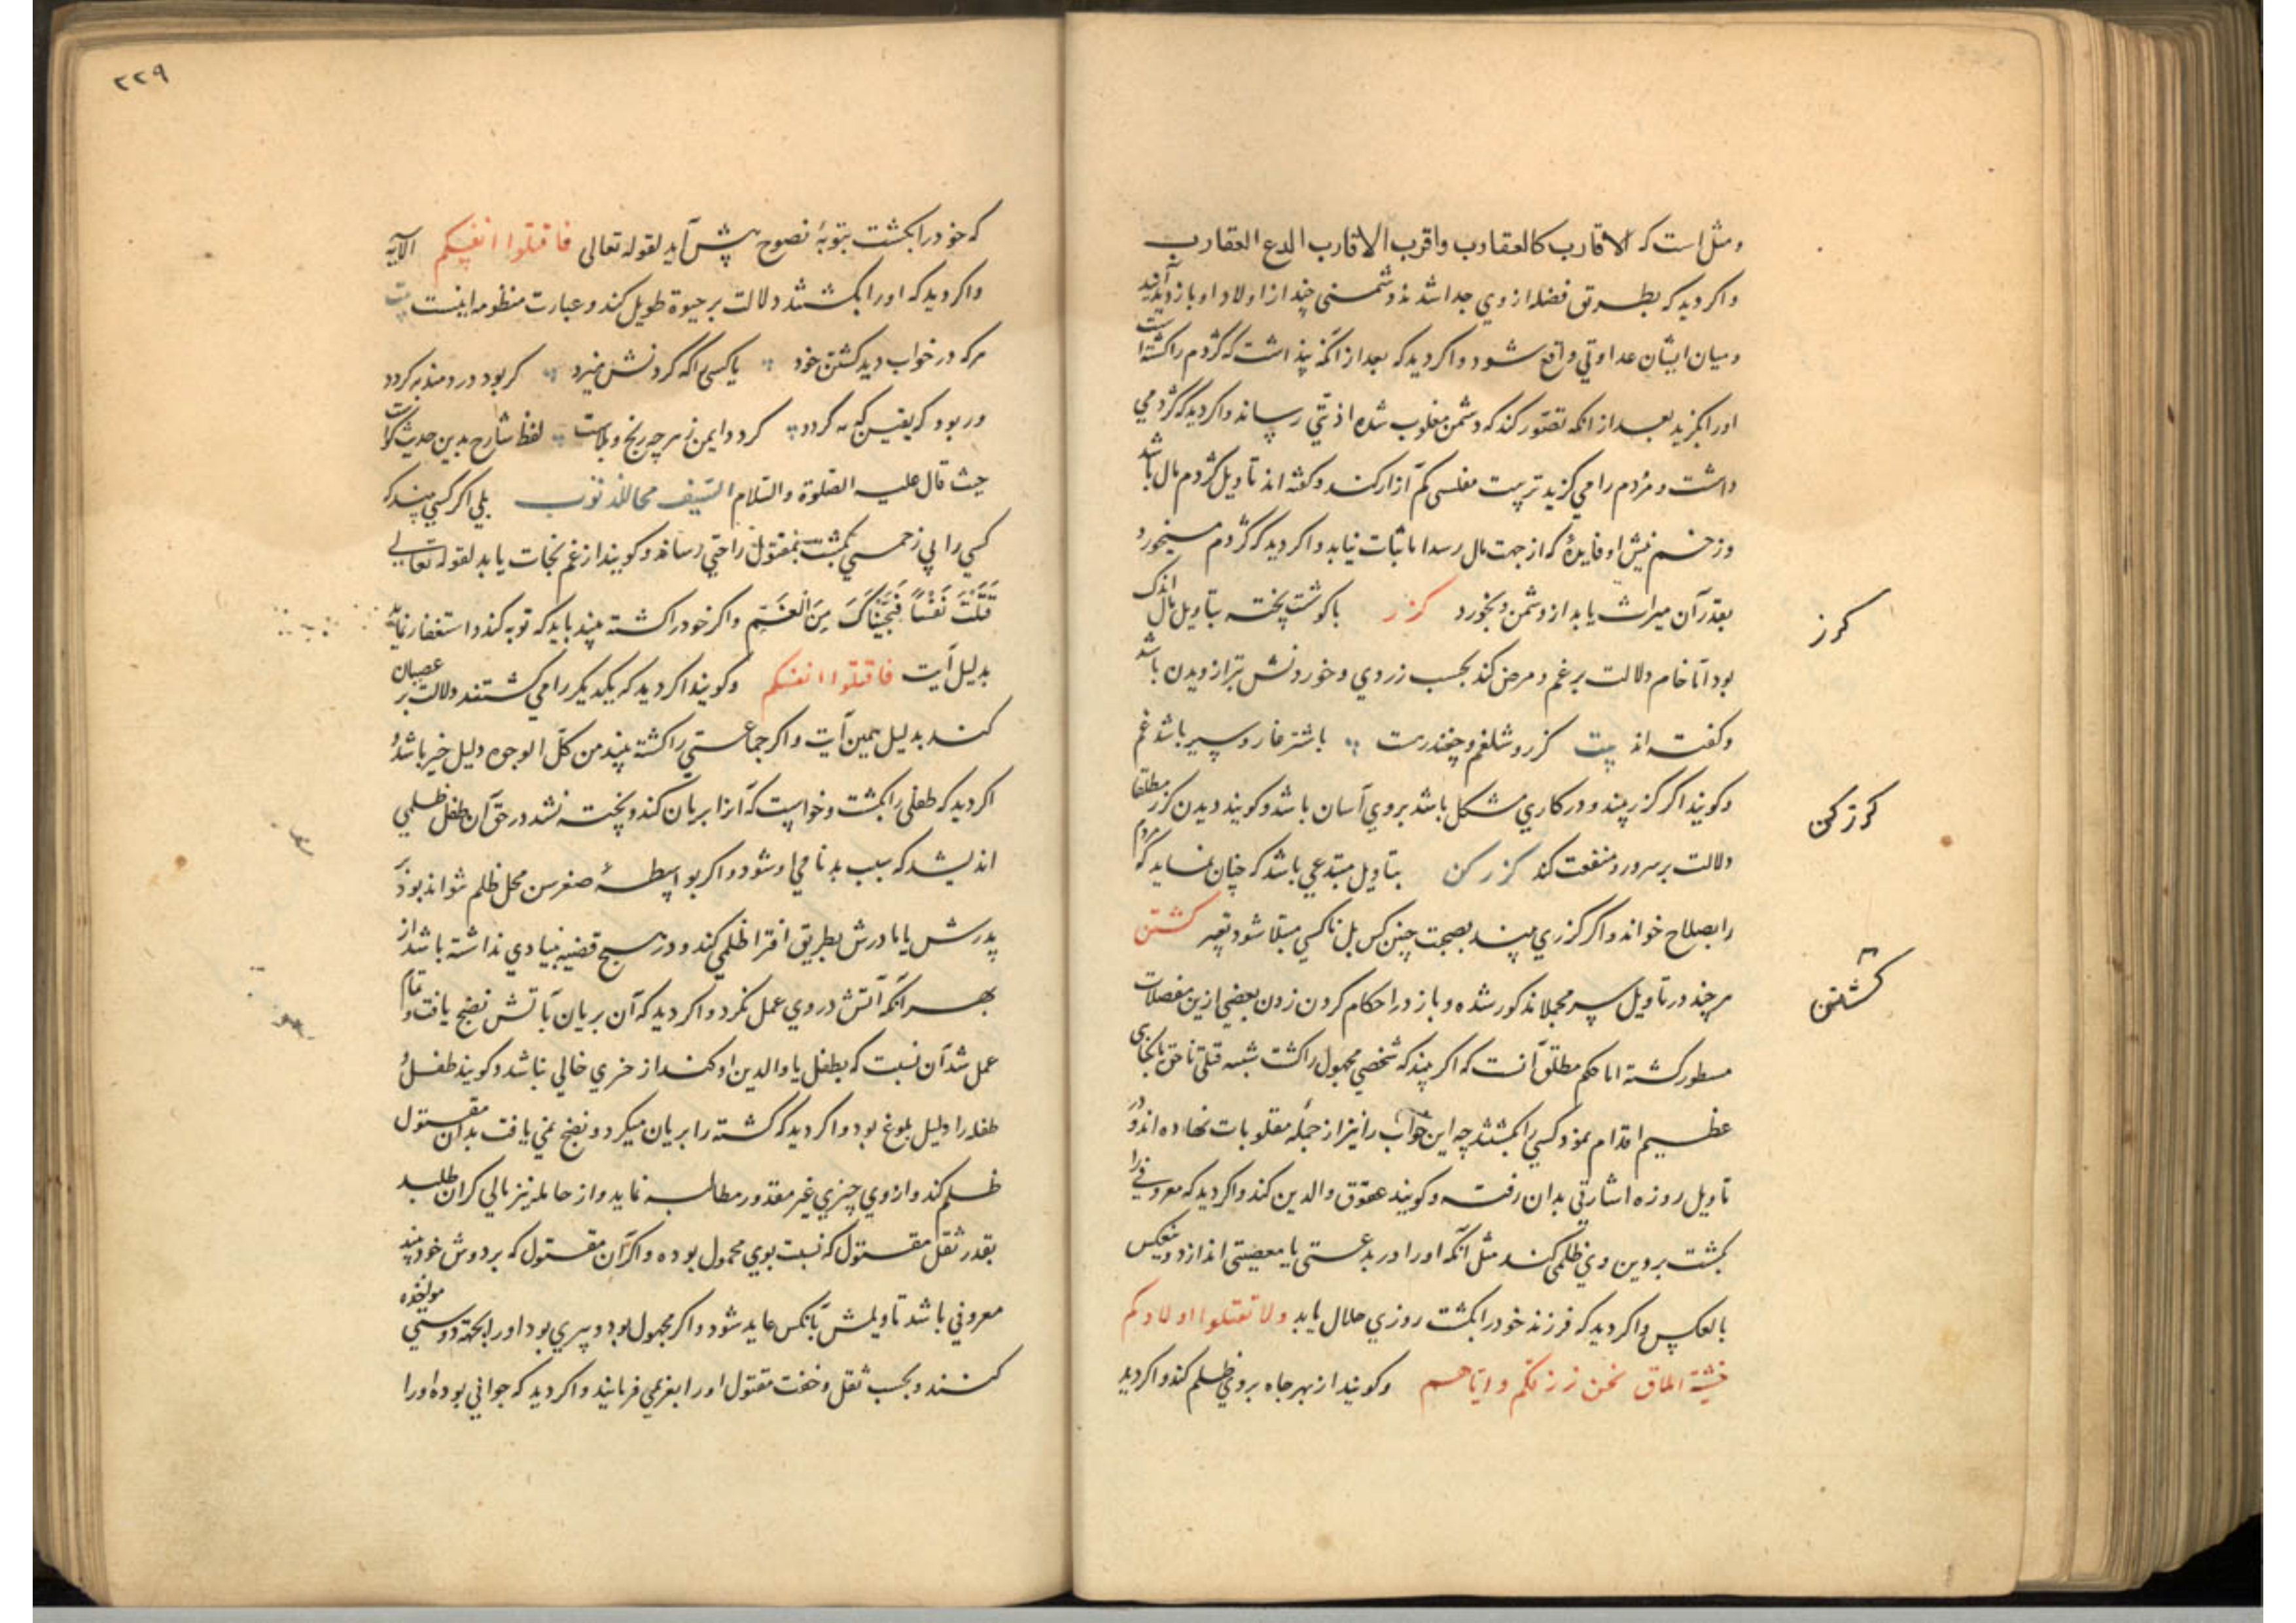 ومثل است که الاقارب کالعقارب واقرب الاقارب الدع العقارب
واکر دید که بطریق فضله از وی جدا شدند دشمنی چند از اولاد او باز دید آیند
ومیان ایشان عداوتی واقع شود واکر دید که بعد از انکه پنداشت که کژدم را کشته است
اورا بکزید بعد از انکه تصور کند که دشمن مغلوب شده اذیتی رساند واکر دید که کژدمی
داشت ومردم را می کزید تربیت مفلسی کم آزار کند وکفته اند تاویل کژدم مال باشد
وزخم نیش او فایدهٔ که از جهت مال رسد اما ثبات نیابد واکر دید که کژدم میخورد
بقدر آن میراث یابد از دشمن وبخورد کزر باکوشت پخته بتاویل مال اندک
بود اما خام دلالت بر غم ومرض کند بحسب زردی وخوردنش بتر از دیدن باشد
وکفته اند بیت کزر وشلغم وچغندرست باشتر غار وسیر باشد غم
وکویند اکر کزر بیند ودر کاری مشکل باشد بروی آسان باشد وکویند دیدن کزر مطلقا
دلالت بر سرور ومنفعت کند کزر کن بتاویل مبتدعی باشد که چنان نماید که مردم
را بصلاح خواند واکر کزری بیند بصحبت چنین کس بل ناکسی مبتلا شود بتعبیر کشتن
هرچند در تاویل سر مجملا مذکور شده وباز در احکام کردن زدن بعضی ازین مفصلات
مسطور کشته اما حکم مطلق آنست که اکر بیند که شخصی مجهول را کشت شبه قتلی ناحق یا بکناهی
عظیم اقدام نمود کسی را بکشتند چه این خواب را نیز از جمله مقلوبات نهاده اند ودر
تاویل روزه اشارتی بدان رفته وکویند عقوق والدین کند واکر دید که معروفی را
بکشت بروی ظلمی کند مثل آنکه اورا در بدعتی یا معصیتی اندازد ومنعکس
بالعکس واکر دید که فرزند خود را بکشت روزی حلال یابد ولا تقتلوا اولادکم
خشیة املاق نحن نرزقکم وایاهم وکویند از بهر جاه بروی ظلم کند واکر دید
کزر
کزر کن
کشتن
٢٢٩
که خود را بکشت بتوبهٔ نصوح پیش آید لقوله تعالی فاقتلوا انفسکم الآیه
واکر دید که اورا بکشتند دلالت بر حیوة طویل کند وعبارت منظومه اینست بیت
هرکه در خواب دید کشتن خود یا کسی را که کردنش میزد کر بود دردمند به کردد
ور بود که یقین که به کردد کردد ایمن ز هرچه رنج وبلاست لفظ شارح بدین حدیث کواست
حیث قال علیه الصلوة والسلام السیف محاء للذنوب بلی اکر کسی بیند که
کسی را بی زخمی بکشت بمقتول راحتی رساند وکویند از غم نجات یابد لقوله تعالی
قَتَلْتَ نَفْسًا فَنَجَّیْنَاکَ مِنَ الْغَمِّ واکر خود را کشته بیند باید که توبه کند واستغفار نماید
بدلیل آیت فاقتلوا انفسکم وکویند اکر دید که یکدیکر را می کشتند دلالت بر عصیان
کند بدلیل همین آیت واکر جماعتی را کشته بیند من کل الوجوه دلیل خیر باشد و
اکر دید که طفلی را بکشت وخواست که آنرا بریان کند وپخته نشد در حق آن طفل ظلمی
اندیشد که سبب بدنامی او شود واکر بواسطهٔ صغر سن محل ظلم نتواند بود بر
پدرش یا مادرش بطریق افترا ظلمی کند ودر هیچ قضیه بنیادی نداشته باشد از
بهر آنکه آتش در وی عمل نکرد واکر دید که آن بریان بآتش نضج یافت وتمام
عمل شد آن نسبت که بطفل یا والدین او کند از خیری خالی نباشد وکویند طفل و
طفله را دلیل بلوغ بود واکر دید که کشته را بریان میکرد ونضج نمی یافت بدان مقتول
ظلم کند وازوی چیزی غیر مقدور مطالبه نماید واز حامله نیز مالی کران طلبد
بقدر ثقل مقتول که نسبت بوی محمول بوده واکر آن مقتول که بر دوش خود بیند
معروفی باشد تاویلش بآنکس عاید شود واکر مجهول بود وپیری بود اورا بجهة دوستی مواخذه
کنند وبحسب ثقل وخفت مقتول اورا بغرمی فرمایند واکر دید که جوانی بوده اورا